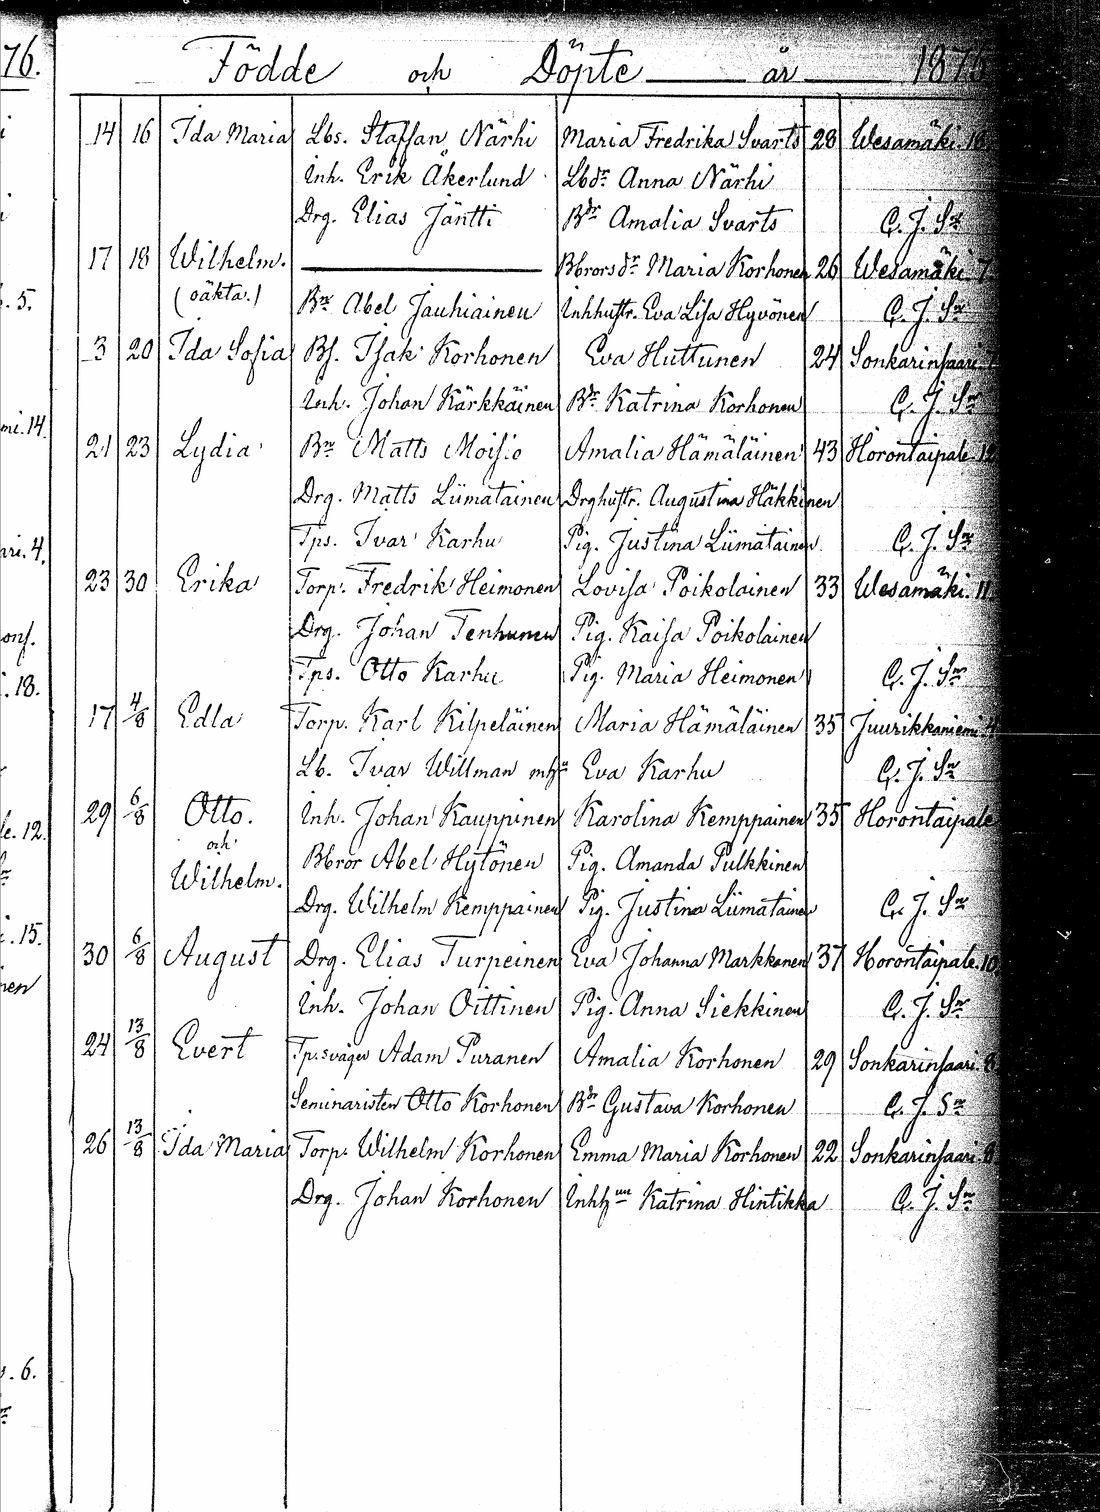 76.
Födde och Döpte år 187
14 16 Ida Maria Lbs. Staffan Närhi Maria Fredrika Svarts 28 Wesamäki.
Inh. Erik Åkerlund Lbdr Anna Närhi
Drg. Elias Jäntti Bdr Amalia Svarts C. J. Sn
17 18 Wilhelm. Bbrorsdr Maria Korhonen 26 Wesamäki. 7
. 5. (oäkta.) Bn Abel Jauhiainen Inhhustr. Eva Lisa Hyvönen C. J. Sn
3 20 Ida Sofia Bs. Isak Korhonen Eva Huttunen 24 Sonkarinsaari.
Inh. Johan Kärkkäinen Bdr Katrina Korhonen C. J. Sn
mi. 14.
21 23 Lydia Bn Matts Moisio Amalia Hämäläinen 43 Horontaipale. 12
Drg. Matts Liimatainen Drghustr. Augustina Häkkinen
ari. 4. Tps. Ivar Karhu Pig. Justina Liimatainen C. J. Sn
23 30 Erika Torp. Fredrik Heimonen Lovisa Poikolainen 33 Wesamäki. 11
onf. Drg. Johan Tenhunen Pig. Kaisa Poikolainen
. 18. Tps. Otto Karhu Pig. Maria Heimonen C. J. Sn
17 4/8 Edla Torp. Karl Kilpeläinen Maria Hämäläinen 35 Juurikkaniemi
Lb. Ivar Willman mhu Eva Karhu C. J. Sn
29 6/8 Otto. Inh. Johan Kauppinen Karolina Kemppainen 35 Horontaipale
le. 12. och
Bbror Abel Hytönen Pig. Amanda Pulkkinen
Wilhelm.
Drg. Wilhelm Kemppainen Pig. Justina Liimatainen C. J. Sn
. 15.
30 6/8 August Drg. Elias Turpeinen Eva Johanna Markkanen 37 Horontaipale. 10
nen Inh. Johan Oittinen Pig. Anna Siekkinen C. J. Sn
24 13/8 Evert Tp.svåger Adam Puranen Amalia Korhonen 29 Sonkarinsaari. 8
Seminaristen Otto Korhonen Bdr Gustava Korhonen C. J. Sn
26 13/8 Ida Maria Torp. Wilhelm Korhonen Emma Maria Korhonen 22 Sonkarinsaari. 8
Drg. Johan Korhonen Inhhun Katrina Hintikka C. J. Sn
. 6.